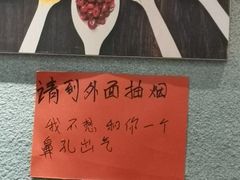 请到外面抽烟
我不想和你一个
鼻孔出气